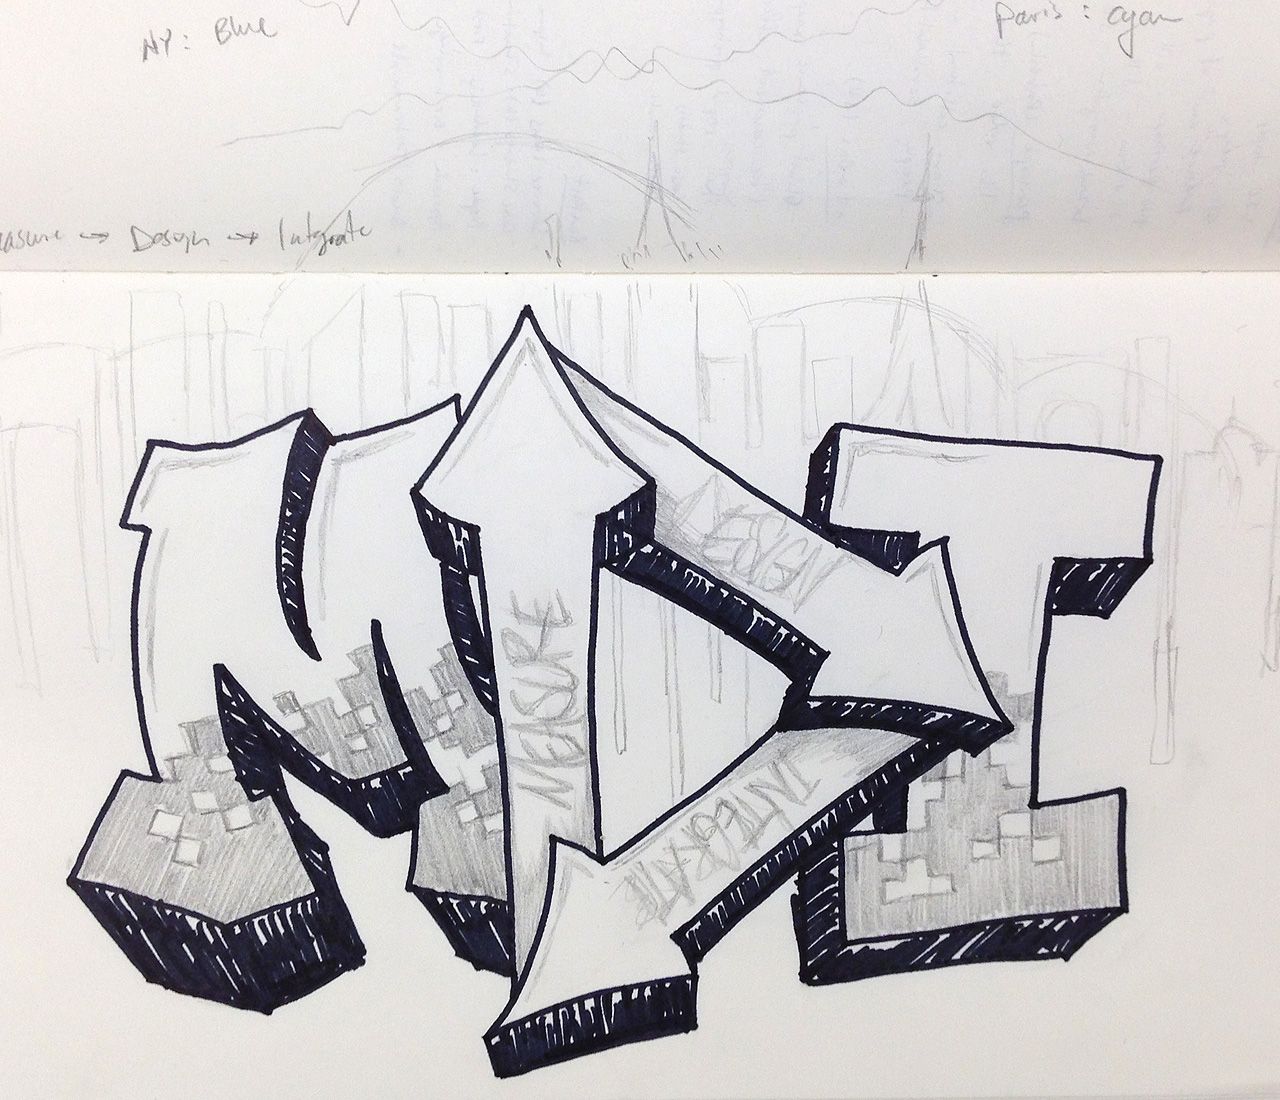 NY: Blue
Paris: Cyan
easure → Design → Integrate
MDI
DESIGN
MEASURE
INTEGRATE